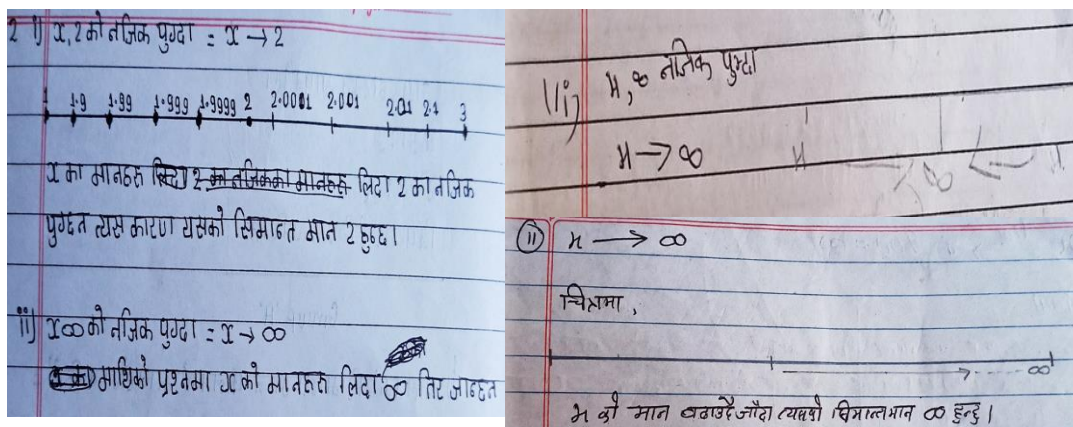 2 i) x, 2 को नजिक पुग्दा = x → 2
1 1.9 1.99 1.999 1.9999 2 2.0001 2.001 2.01 2.1 3
x का मानहरु लिदा 2 का नजिकका मानहरु लिदा 2 का नजिक
पुग्दछन त्यस कारण यसको सिमान्त मान 2 हुन्छ।
ii) x ∞ को नजिक पुग्दा = x → ∞
माथिको प्रश्नमा x को मानहरु लिदा ∞ तिर जान्छन
ii) x, ∞ नजिक पुग्दा
x → ∞
(ii) x → ∞
चित्रमा,
∞
x को मान बढाउदै जाँदा त्यसको सिमान्तमान ∞ हुन्छ।